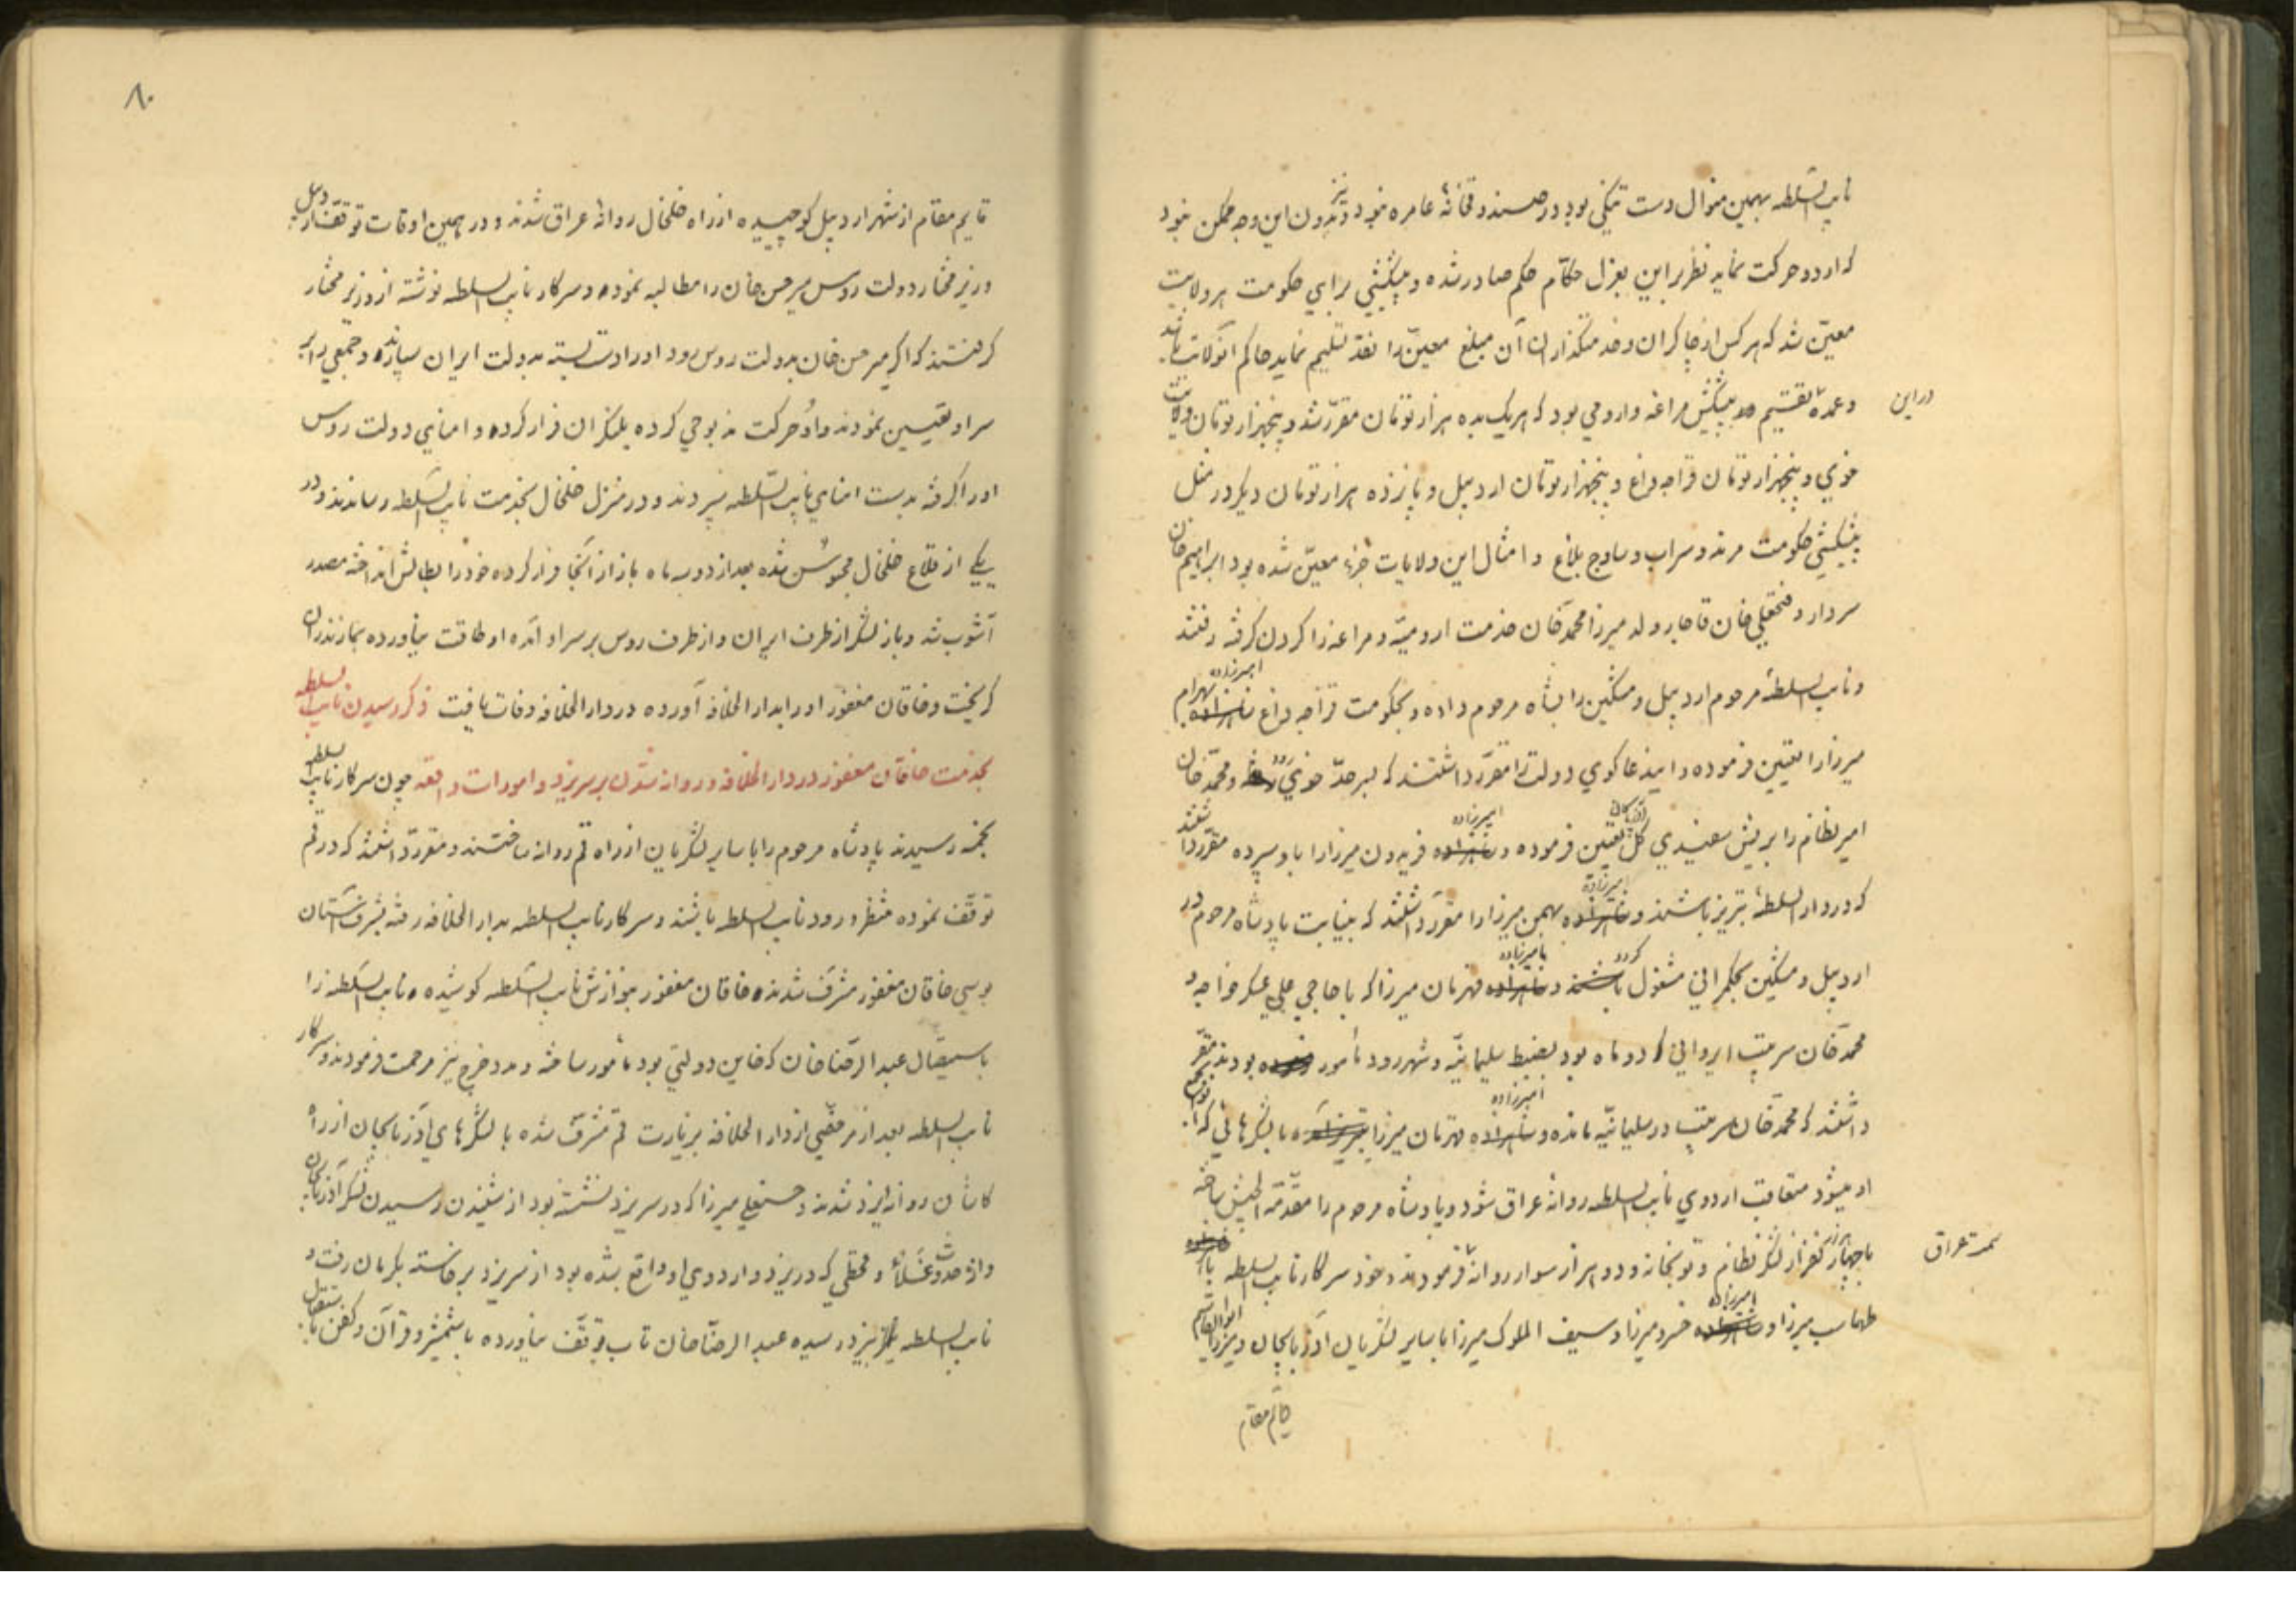 نایب السلطه بهمین منوال دست تنگی بود در صندوقخانهٔ عامره نبود و بدون این وجه ممکن نبود
که اردو حرکت نماید نظر بر این بعزل حکّام حکم صادر شده و پیشکشی برای حکومت هر ولایت
معیّن شد که هر کس از چاکران و خدمتگذاران آن مبلغ معیّن را نقد تسلیم نماید حاکم انولایت باشد
در این
و عمدهٔ تقسیم پیشکش مراغه و ارومی بود که هر یک بده هزار تومان مقرّر شد و پنجهزار تومان ولایت
خوی و پنجهزار تومان قراجه داغ و پنجهزار تومان اردبیل و پانزده هزار تومان دیگر در مثل
پیشکشی حکومت مرند و سراب و ساوج بلاغ و امثال این ولایات جزء معیّن شده بود ابراهیم خان
سردار و فتحعلی خان قاجار ولد میرزا محمّد خان خدمت ارومیّه و مراغه را کردن گرفته رفتند
و نایب السلطهٔ مرحوم اردبیل و مشکین را بشاه مرحوم داده و بحکومت قراجه داغ امیرزاده بهرام
میرزا را تعیین فرموده و این دعاگوی دولت را مقرّر داشتند که بسرحدّ خوی رود و محمّد خان
امیر نظام را بریش سفیدی کل آذربایجان تعیین فرموده و امیرزاده فریدون میرزا را باو سپرده مقرّر داشتند
که در دار السلطهٔ تبریز باشند و امیرزاده بهمن میرزا را مقرّر داشتند که بنیابت پادشاه مرحوم در
اردبیل و مشکین بحکمرانی مشغول گردد و امیرزاده قهرمان میرزا که با حاجی علی عسکر خواجه و
محمّد خان سرتیپ ایروانی که دو ماه بود بضبط سلیمانیّه و شهر رود مأمور بودند مقرّر
داشتند که محمّد خان سرتیپ در سلیمانیّه مانده و امیرزاده قهرمان میرزا با لشکرهائی که ابوابجمع
او میشود متعاقب اردوی نایب السلطه روانهٔ عراق شود و پادشاه مرحوم را مقدّمة الجیش ساخته
سمت عراق
با چهار هزار نفر از لشکر نظام و توپخانه و دو هزار سوار روانه فرمودند و خود سرکار نایب السلطه با
طهماسب میرزا و امیرزاده خسرو میرزا و سیف الملوک میرزا با سایر لشکریان آذربایجان و میرزا ابوالقاسم
قایم مقام
۸۰
قایم مقام از شهر اردبیل کوچیده از راه خلخال روانهٔ عراق شدند و در همین اوقات توقف اردبیل
وزیر مختار دولت روس میر حسن خان را مطالبه نموده و سرکار نایب السلطه نوشته از وزیر مختار
گرفتند که اگر میر حسن خان بدولت روس رود او را دست بسته بدولت ایران سپارند و جمعی را بر
سر او تعیین نمودند و او حرکت مذبوحی کرده بلنکران فرار کرده و امنای دولت روس
او را گرفته بدست امنای نایب السّلطه سپردند و در منزل خلخال بخدمت نایب السّلطه رساندند و در
یکی از قلاع خلخال محبوس شده بعد از دو سه ماه باز از آنجا فرار کرده خود را بطالش انداخته مصدر
آشوب شد و باز لشکر از طرف ایران و از طرف روس بر سر او آمده او طاقت نیاورده بمازندران
گریخت و خاقان مغفور او را بدار الخلافه آورده در دار الخلافه وفات یافت ذکر رسیدن نایب السلطه
بخدمت خاقان مغفور در دار الخلافه و روانه شدن بر سر یزد و امورات واقعه چون سرکار نایب السلطه
بخمسه رسیدند پادشاه مرحوم را با سایر لشکریان از راه قم روانه ساختند و مقرّر داشتند که در قم
توقّف نموده منتظر ورود نایب السلطه باشند و سرکار نایب السلطه بدار الخلافه رفته بشرف آستان
بوسی خاقان مغفور مشرّف شدند خاقان مغفور بنوازش نایب السّلطه کوشیده نایب السّلطه را
باستیصال عبد الرّضا خان که خاین دولتی بود مأمور ساخته و مدد خرج نیز مرحمت فرمودند و سرکار
نایب السلطه بعد از مرخّصی از دار الخلافه بزیارت قم مشرّف شده با لشکرهای آذربایجان از راه
کاشان روانه یزد شدند و حسنعلی میرزا که در سر یزد نشسته بود از شنیدن رسیدن لشکر آذربایجان
و از حدوث غلاء و قحطی که در یزد و اردوی او واقع شده بود از سر یزد برخاسته بکرمان رفت و
نایب السلطه بیزد رسیده عبد الرضّا خان تاب توقّف نیاورده با شمشیر و قرآن و کفن باستقبال